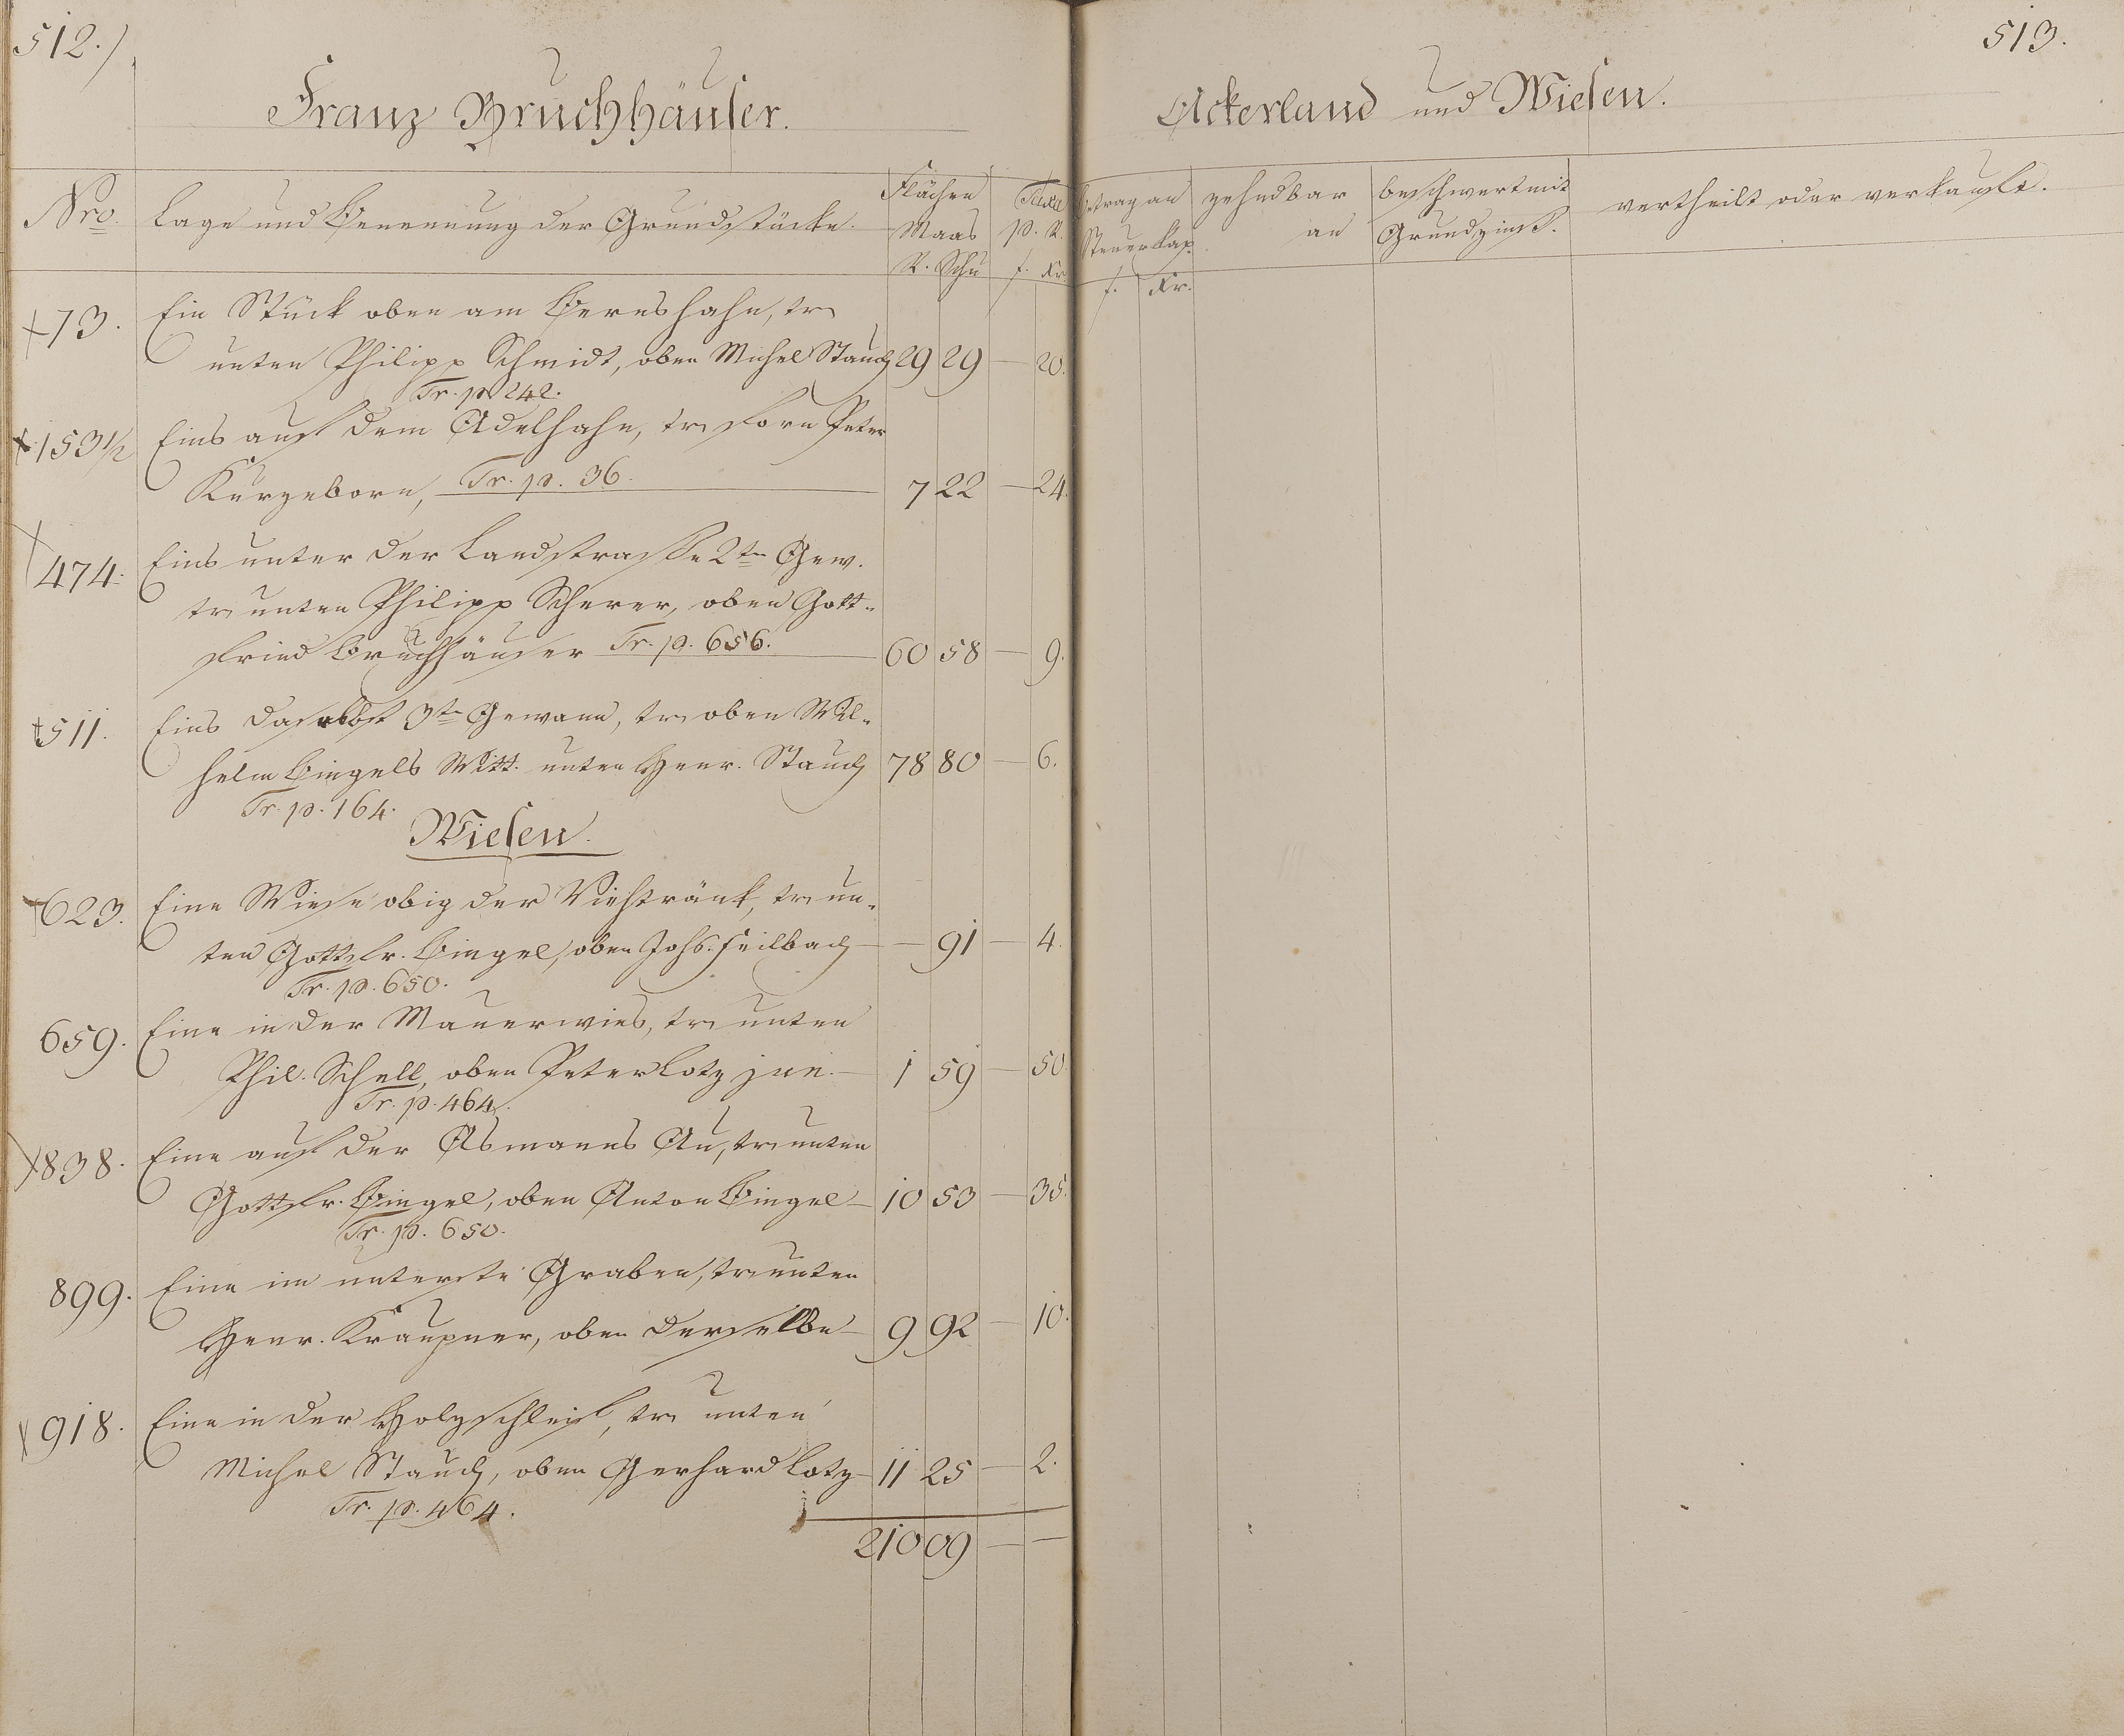 512.)
Franz Bruchhäuser.
Nro. Lage und Benennung der Grundstücke. Flächen Taxe
Maas p. R.
R. Schu f. Kr
+73. Ein Stück oben am Bernshahn, tr
unten Philipp Schmidt, oben Michel Stauch 29 29 — 20.
Tr. p. 242.
+153½ Eins auf dem Adelhahn, tr forn Peter
Kurzeborn, Tr. p. 36. 7 22 — 24.
+474. Eins unter der Landstrasse 2te Gew.
tr unten Philipp Scherer, oben Gott-
fried Bruchhäuser Tr. p. 656. 60 58 — 9.
+511. Eins daselbst 3te Gewann, tr oben Wil-
helm Bingels Witt. unten Henr. Stauch 78 80 — 6.
Tr. p. 164.
Wiesen.
+623. Eine Wiese obig der Viehtränk, tr un-
ten Gottfr. Bingel, oben Johs. Heilbach — 91 — 4.
Tr. p. 650.
659. Eine in der Mauerwies, tr unten
Phil. Schell, oben Peter Lotz jun. — 1 59 — 50.
Tr. p. 464.
+838. Eine auf der Asmanns Au, tr unten
Gottfr. Bingel, oben Anton Bingel — 10 53 — 35.
Tr. p. 650.
899. Eine im unterste Graben, tr unten
Henr. Kraupner, oben derselbe — 9 92 — 10.
+918. Eine in der Holzschleif, tr unten
Michel Stauch, oben Gerhard Lotz — 11 25 — 2.
Tr. p. 464.
210 09 — —
513.
Ackerland und Wiesen.
Betrag an zehndbar beschwert mit vertheilt oder verkauft.
Steuerkap. an Grundzinß.
f. Kr.